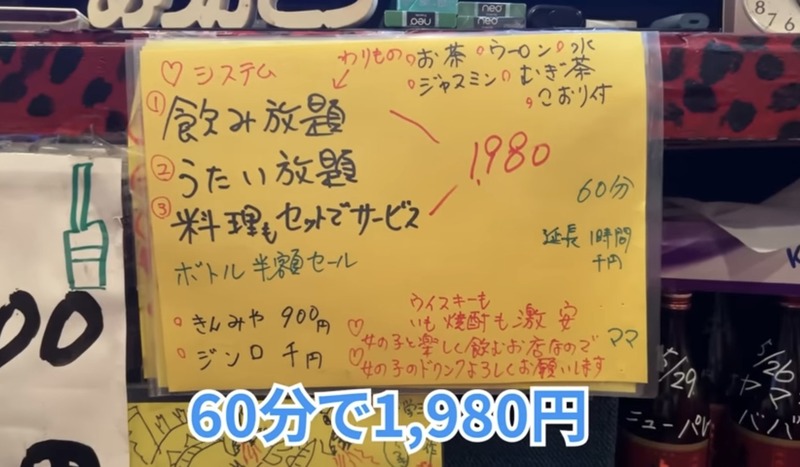 neo
neo
8 7 6
♡システム
わりもの お茶 ウーロン 水
ジャスミン むぎ茶
こおり付
① 飲み放題
② うたい放題
③ 料理もセットでサービス
1,980
60分
延長 1時間
千円
ボトル半額セール
きんみや 900円
ジンロ 千円
ウイスキーも
いも焼酎も激安
♡女の子と楽しく飲むお店なので
♡女の子のドリンクよろしくお願いします
ママ
00
5/29
ニューパレ
5/26
ヤマ
ババ
60分で1,980円